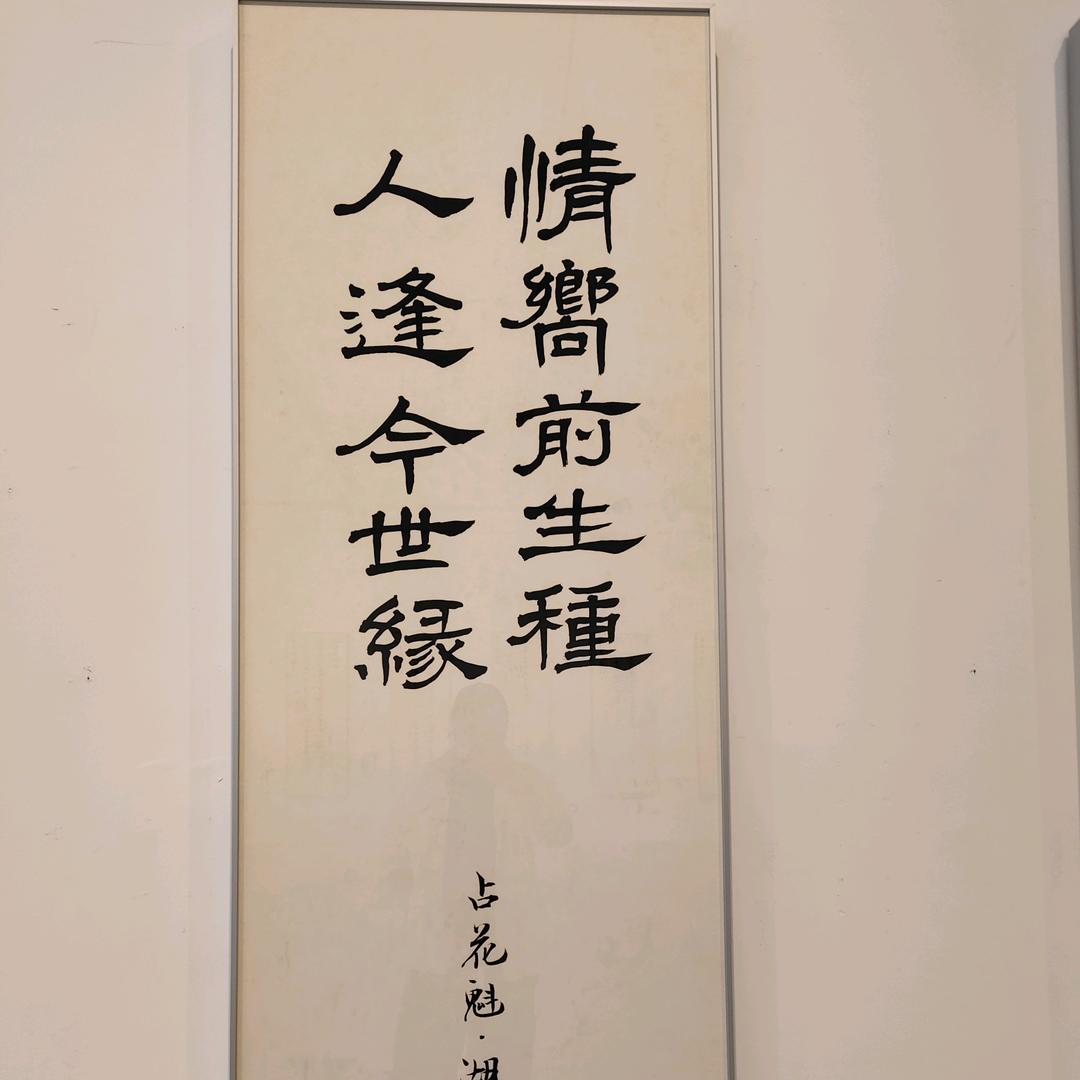 情嚮前生種
人逢今世緣
占花魁·湖